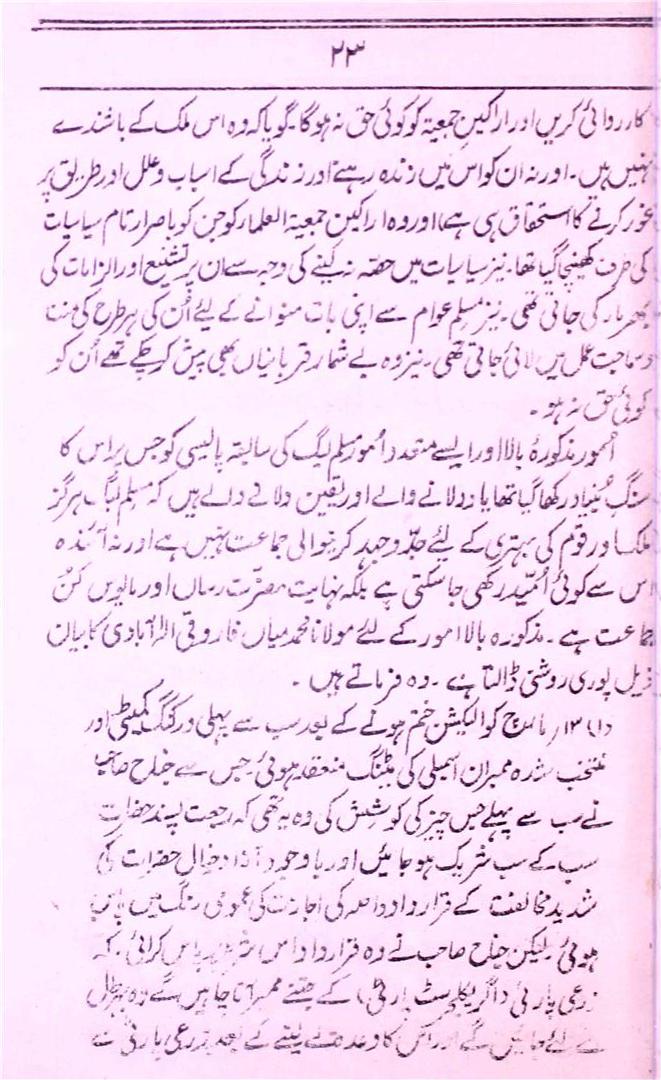 ۲۳
کارروائی کریں اور اراکین جمعیۃ کو کوئی حق نہ ہوگا۔ گویا کہ وہ اس ملک کے باشندے
نہیں ہیں۔ اور نہ ان کو اس میں زندہ رہنے اور زندگی کے اسباب و علل اور طریق پر
غور کرنے کا استحقاق ہی ہے) اور وہ اراکین جمعیۃ العلماء کو جن کو باصرار تام سیاسیات
کی طرف کھینچا گیا تھا۔ نیز سیاسیات میں حصہ نہ لینے کی وجہ سے ان پر تشنیع اور الزامات کی
بھرمار کی جاتی تھی۔ نیز مسلم عوام سے اپنی بات منوانے کے لئے اُن کی ہر طرح کی منت
و سماجت عمل میں لائی جاتی تھی۔ نیز وہ بے شمار قربانیاں بھی پیش کر چکے تھے اُن کو
کوئی حق نہ ہو۔
اُمور مذکورۂ بالا اور ایسے متعدد اُمور مسلم لیگ کی سابقہ پالیسی کو جس پر اس کا
سنگِ بُنیاد رکھا گیا تھا یاد دلانے والے اور یقین دلانے والے ہیں کہ مسلم لیگ ہرگز
ملک اور قوم کی بہتری کے لئے جدّ و جہد کرنیوالی جماعت نہیں ہے اور نہ آئندہ
اس سے کوئی اُمّید رکھی جا سکتی ہے بلکہ نہایت مضرّت رساں اور مایوس کُن
جماعت ہے۔ مذکورہ بالا امور کے لئے مولانا محمد میاں فاروقی الٰہ آبادی کا بیان
ذیل پوری روشنی ڈالتا ہے۔ وہ فرماتے ہیں۔
(۱) ۱۳؍ مارچ کو الیکشن ختم ہونے کے بعد سب سے پہلی ورکنگ کمیٹی اور
منتخب شدہ ممبران اسمبلی کی میٹنگ منعقد ہوئی۔ جس سے جناح صاحب
نے سب سے پہلے جس چیز کی کوشش کی وہ یہ تھی کہ رجعت پسند حضرات
سب کے سب شریک ہو جائیں اور باوجود آزاد خیال حضرات کی
شدید مخالفت کے قرارداد داخلہ کی اجازت کی عمومی رنگ میں پاس
ہوئی۔ لیکن جناح صاحب نے وہ قرارداد اس پاس کرائی۔ کہ
زرعی پارٹی (اگریکلچرسٹ پارٹی) کے جتنے ممبر آنا چاہیں گے وہ بہرحال
لے لئے جائیں گے اور اس کا وعدہ لے لینے کے بعد زرعی پارٹی نے